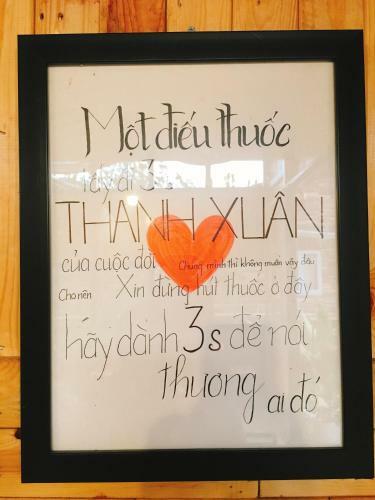 Một điếu thuốc
lấy đi 3s
THANH XUÂN
của cuộc đời Chúng mình thì không muốn vậy đâu
Cho nên Xin đừng hút thuốc ở đây
hãy dành 3s để nói
thương ai đó